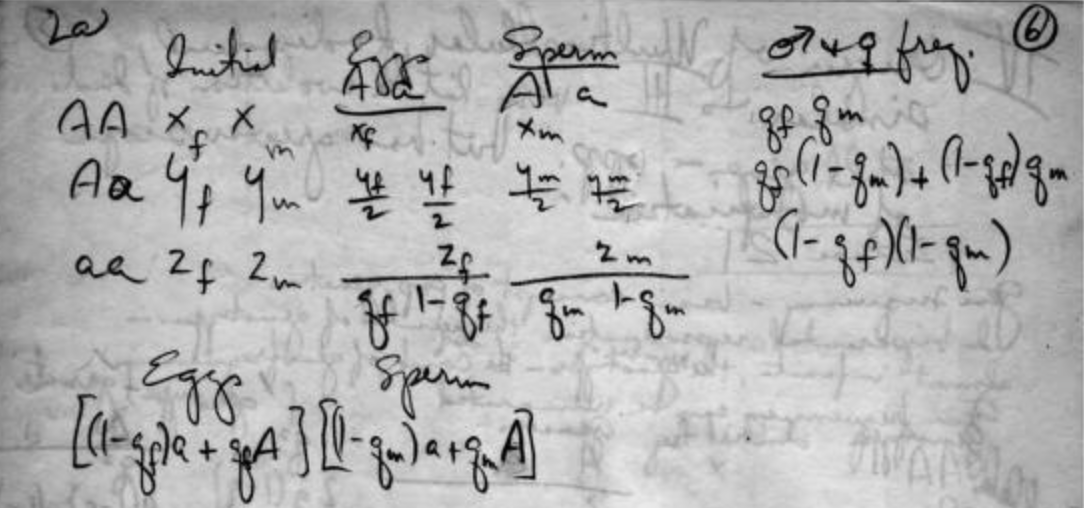 2a ⑥
Initial Eggs Sperm ♂ + ♀ freq.
A a A a
AA x_f x_m x_f x_m q_f q_m
Aa y_f y_m y_f/2 y_f/2 y_m/2 y_m/2 q_f(1-q_m) + (1-q_f)q_m
aa z_f z_m z_f z_m (1-q_f)(1-q_m)
q_f 1-q_f q_m 1-q_m
Eggs Sperm
[(1-q_f)a + q_f A] [(1-q_m)a + q_m A]